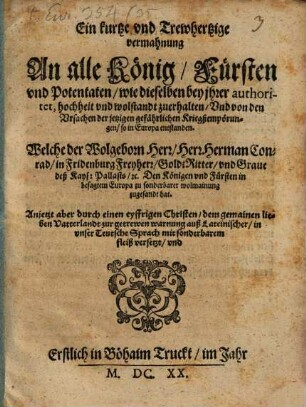 Ein kurtze vnd Trewhertzige
vermahnung
An alle König / Fürsten
vnd Potentaten / wie dieselben bey jhrer authori-
tet, hochheit vnd wolstandt zuerhalten / Vnd von den
Vrsachen der jezigen gefährlichen Kriegßempörun-
gen / so in Europa entstanden.
Welche der Wolgeborn Herr / Herr Herman Con-
rad / in Fridenburg Freyherr / Goldt Ritter / vnd Graue
deß Kays: Pallasts / ꝛc. Den Königen vnd Fürsten in
besagtem Europa zu sonderbarer wolmainung
zugesandt hat.
Anjetzt aber durch einen eyffrigen Christen / dem gemainen lie-
ben Vatterlandt zur getrewen warnung auß Lateinischer / in
vnser Teutsche Sprach mit sonderbarem
fleiß versetzt / vnd
Erstlich in Böhaim Truckt / im Jahr
M. DC. XX.